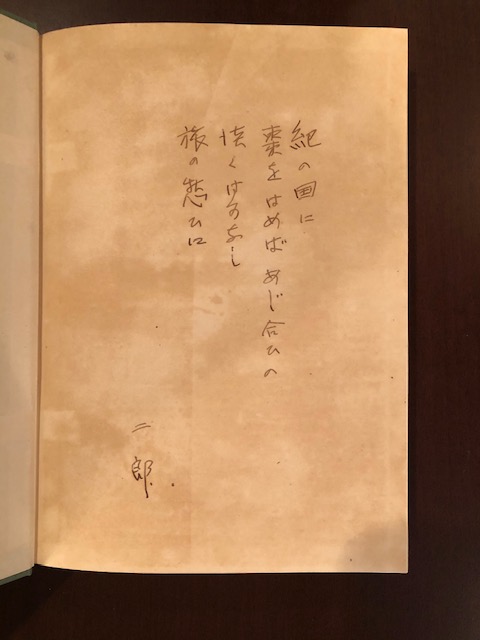 紀の国に
棗をはめばあじ合ひの
淡くはかなし
旅の愁ひに
二郎